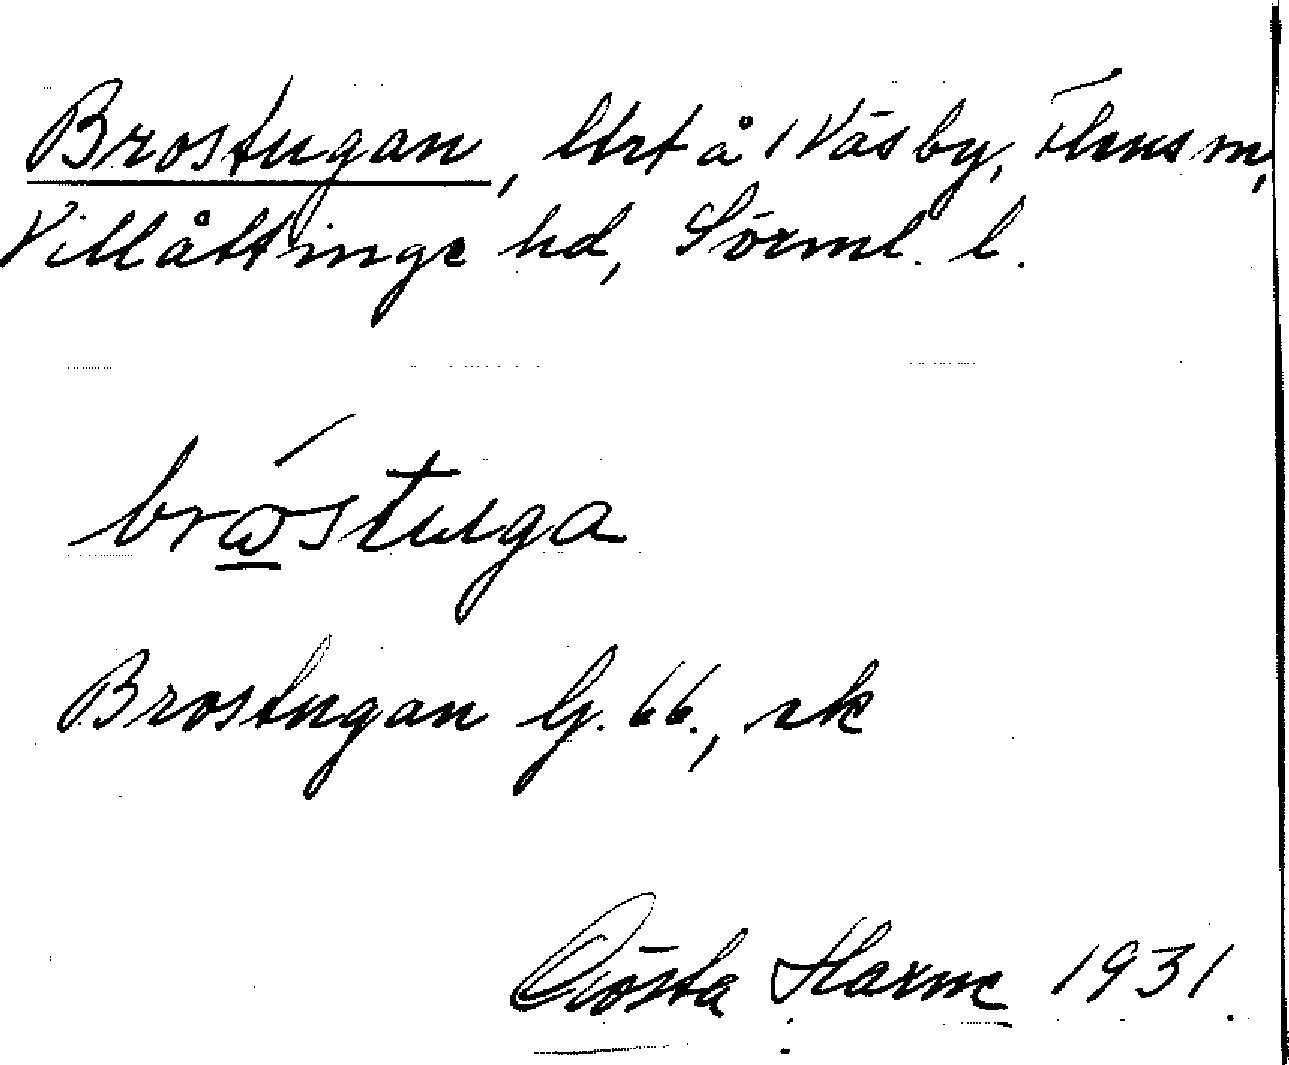 Brostugan, Urt å Väsby, Flens sn,
Villåttinge hd, Sörml. l.
bró̱stuga
Brostugan G. 66., rk
Gösta Harme 1931.